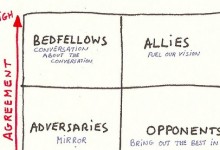 HIGH
BEDFELLOWS
CONVERSATION
ABOUT THE
CONVERSATION
ALLIES
FUEL OUR VISION
AGREEMENT
ADVERSARIES
MIRROR
OPPONENTS
BRING OUT THE BEST IN